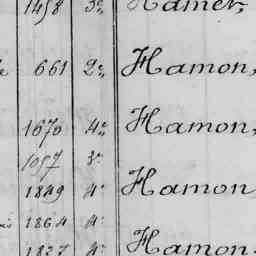 1458 3e Hamel,
661 2e Hamon,
1670 4e Hamon,
1057 3e
1849 4e Hamon
1864 4e
1827 4e Hamon.